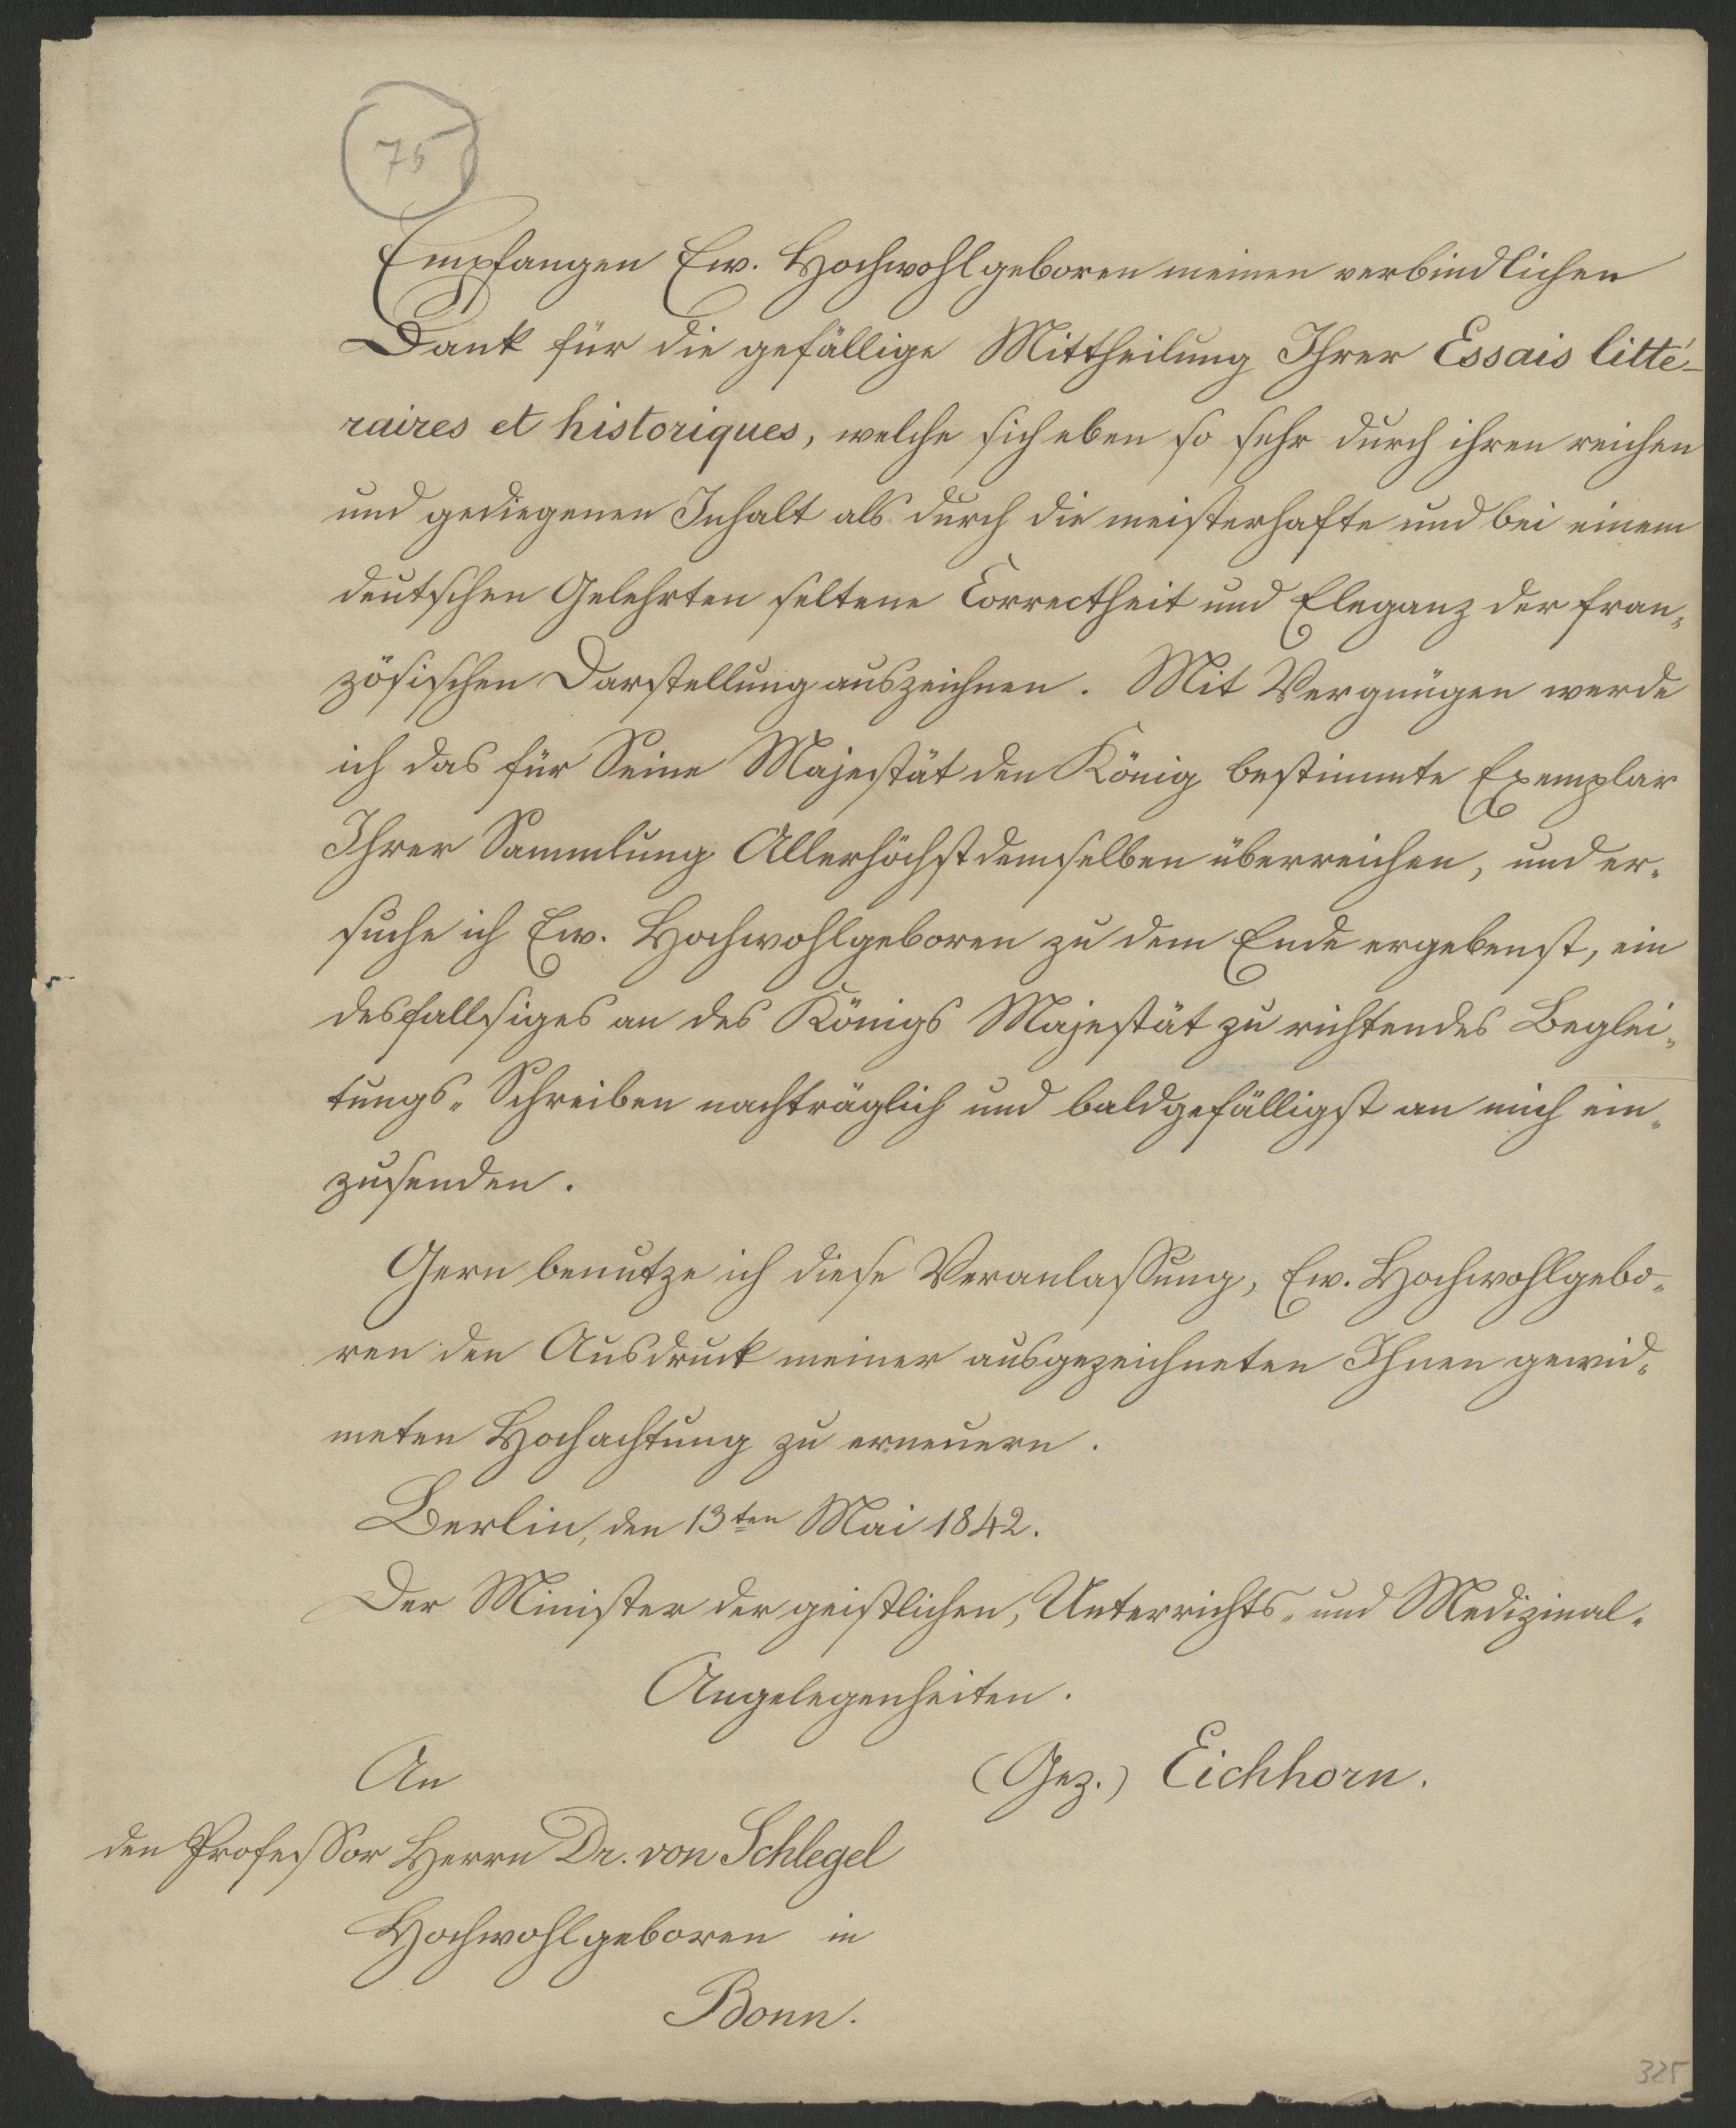 75
Empfangen Ew. Hochwohlgeboren meinen verbindlichen
Dank für die gefällige Mittheilung Ihrer Essais litté-
raires et historiques, welche sich eben so sehr durch ihren reichen
und gediegenen Inhalt als durch die meisterhafte und bei einem
deutschen Gelehrten seltene Correctheit und Eleganz der fran-
zösischen Darstellung auszeichnen. Mit Vergnügen werde
ich das für Seine Majestät den König bestimmte Exemplar
Ihrer Sammlung Allerhöchstdemselben überreichen, und er-
suche ich Ew. Hochwohlgeboren zu dem Ende ergebenst, ein
desfallsiges an des Königs Majestät zu richtendes Beglei-
tungs-Schreiben nachträglich und baldgefälligst an mich ein-
zusenden.
Gern benutze ich diese Veranlassung, Ew. Hochwohlgebo-
ren den Ausdruck meiner ausgezeichneten Ihnen gewid-
meten Hochachtung zu erneuern.
Berlin, den 13ten Mai 1842.
Der Minister der geistlichen, Unterrichts- und Medizinal-
Angelegenheiten.
(Gez.) Eichhorn.
An
den Professor Herrn Dr. von Schlegel
Hochwohlgeboren in
Bonn.
325